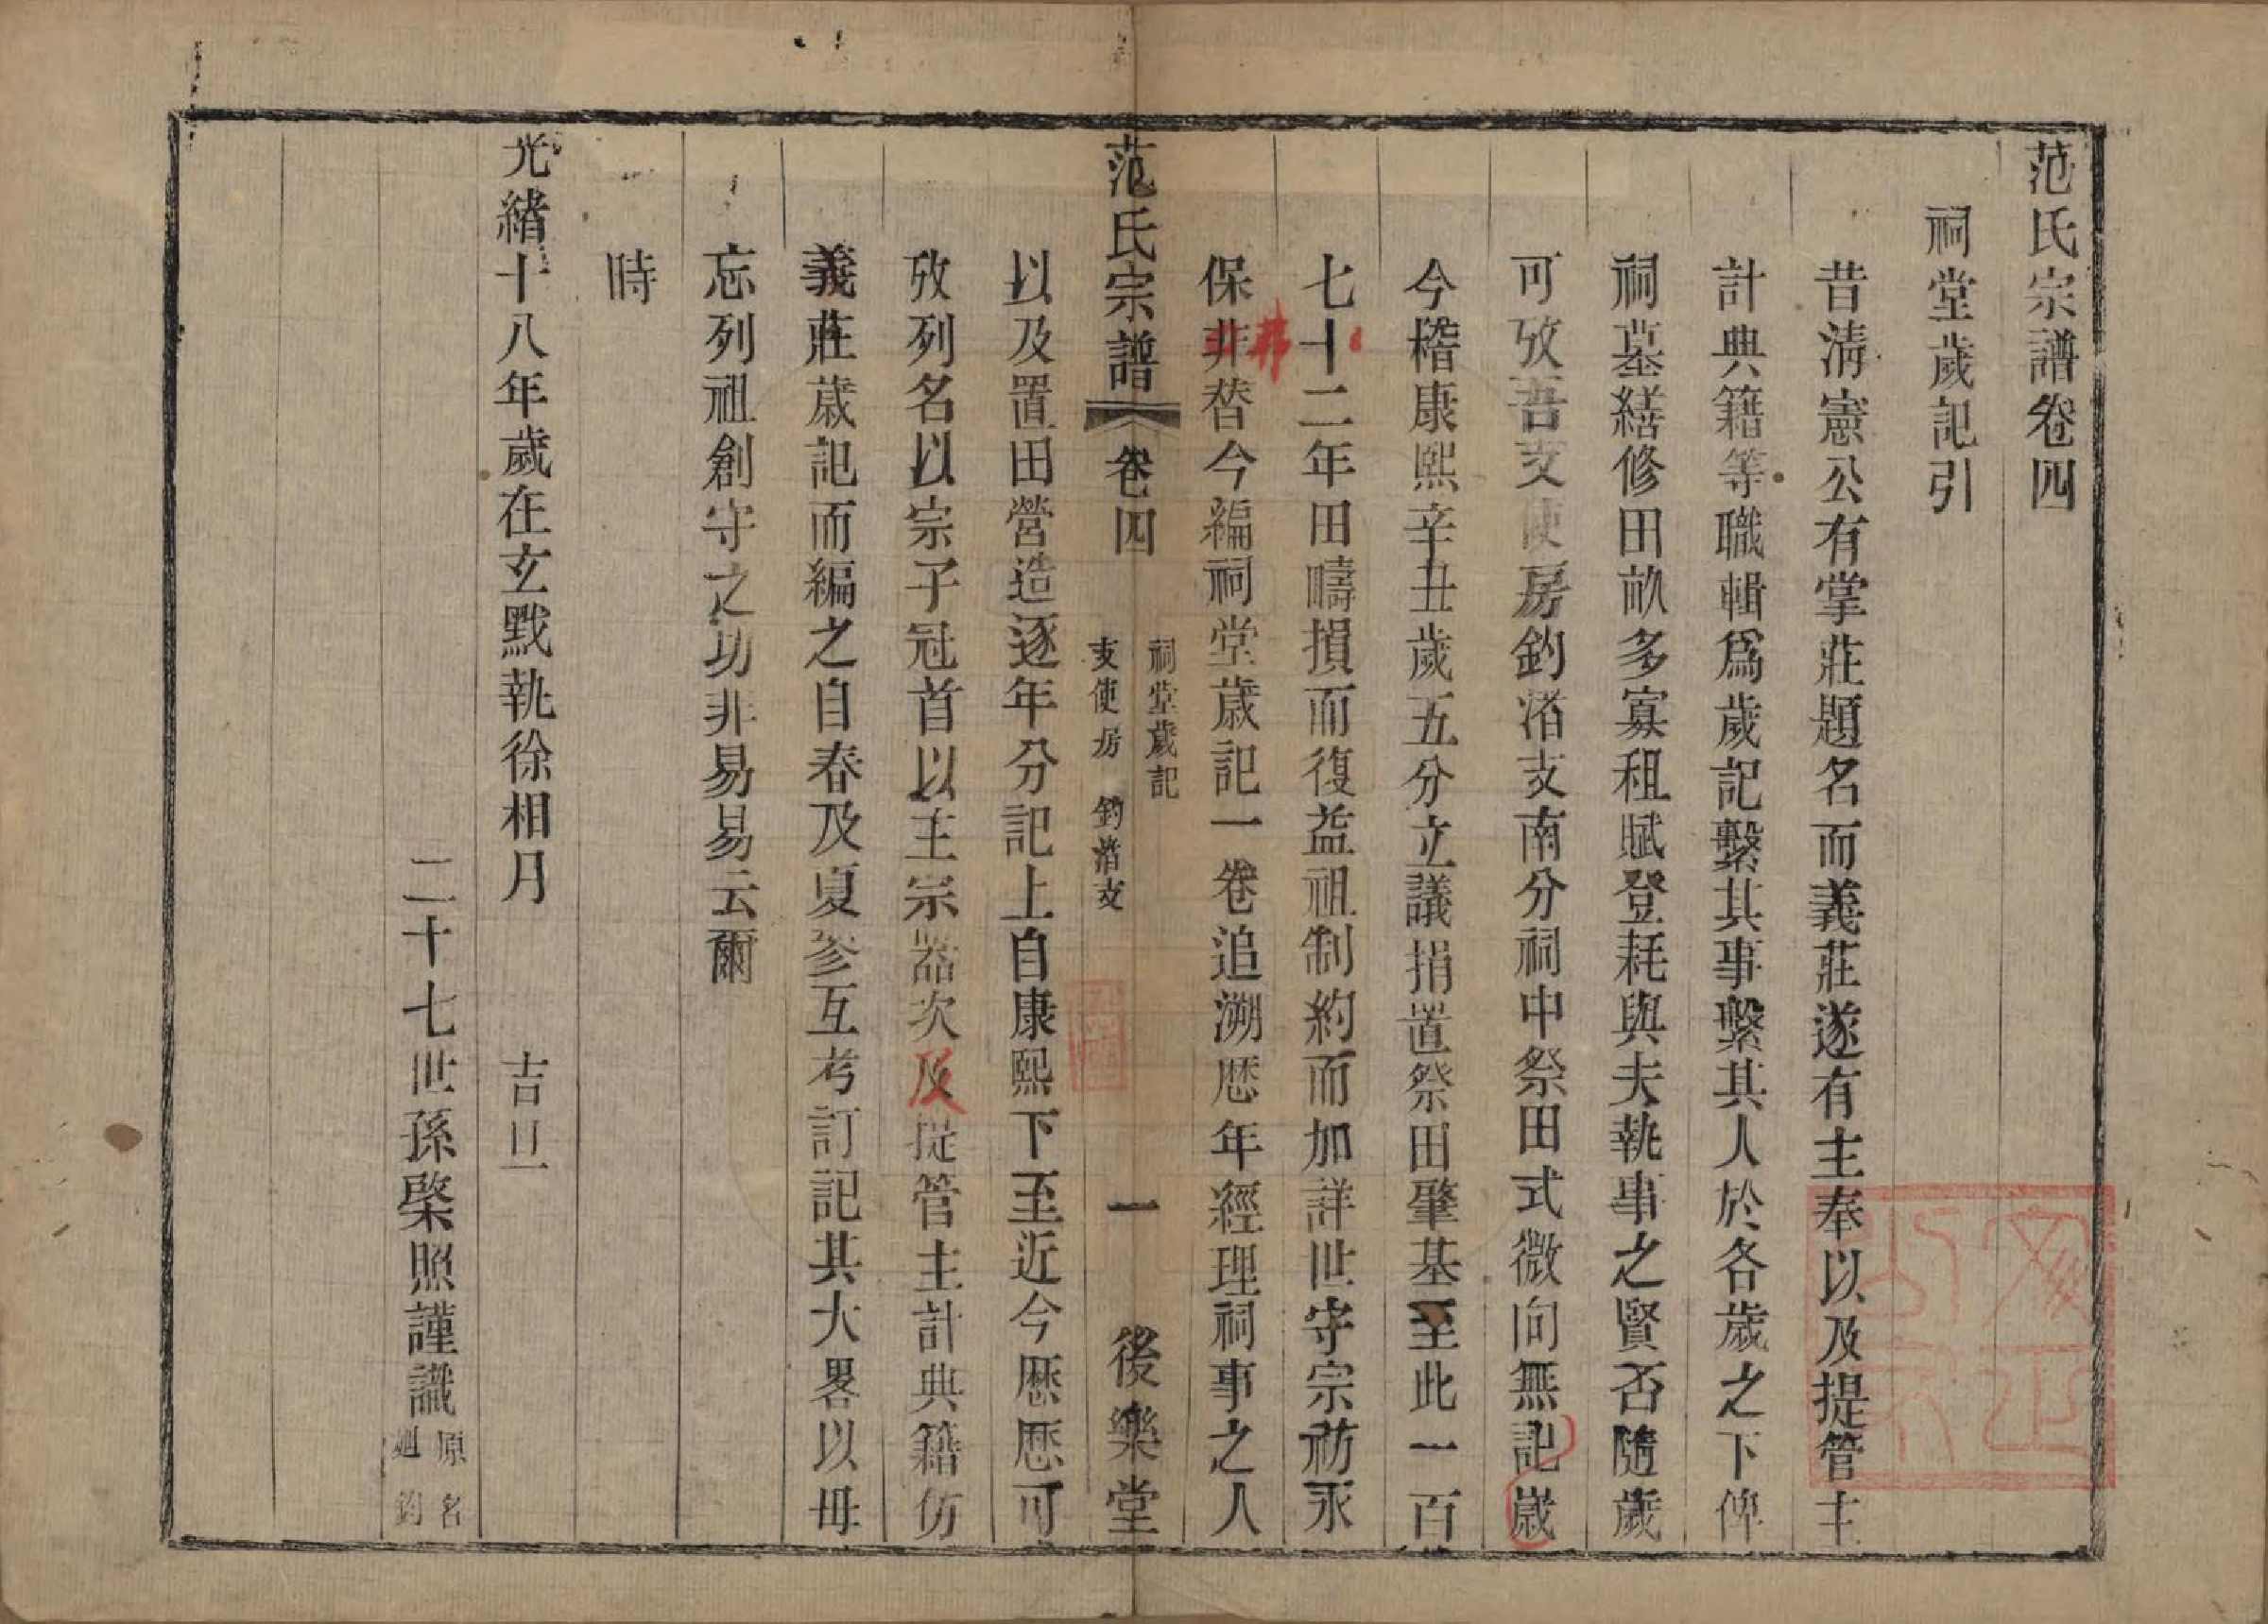 范氏宗譜卷四
祠堂歲記引
昔清憲公有掌莊題名而義莊遂有主奉以及提管主
計典籍等職輯爲歲記繫其事繫其人於各歲之下俾
祠墓繕修田畝多寡租賦登耗與夫執事之賢否隨歲
可攷吾支使房釣渚支南分祠中祭田式微向無記歲
今稽康熙辛丑歲五分立議捐置祭田肇基至此一百
七十二年田疇損而復益祖制約而加詳世守宗祊永
保非替今編祠堂歲記一卷追溯歷年經理祠事之人
弗
范氏宗譜 卷四 祠堂歲記 支使房 釣渚支 一 後樂堂
以及置田營造逐年分記上自康熙下至近今歷歷可
攷列名以宗子冠首以主宗器次及提管主計典籍仿
義莊歲記而編之自春及夏參互考訂記其大畧以毋
忘列祖創守之功非易易云爾
時
光緒十八年歲在玄黓執徐相月 吉旦
二十七世孫棨照謹識 原名 廻鈞